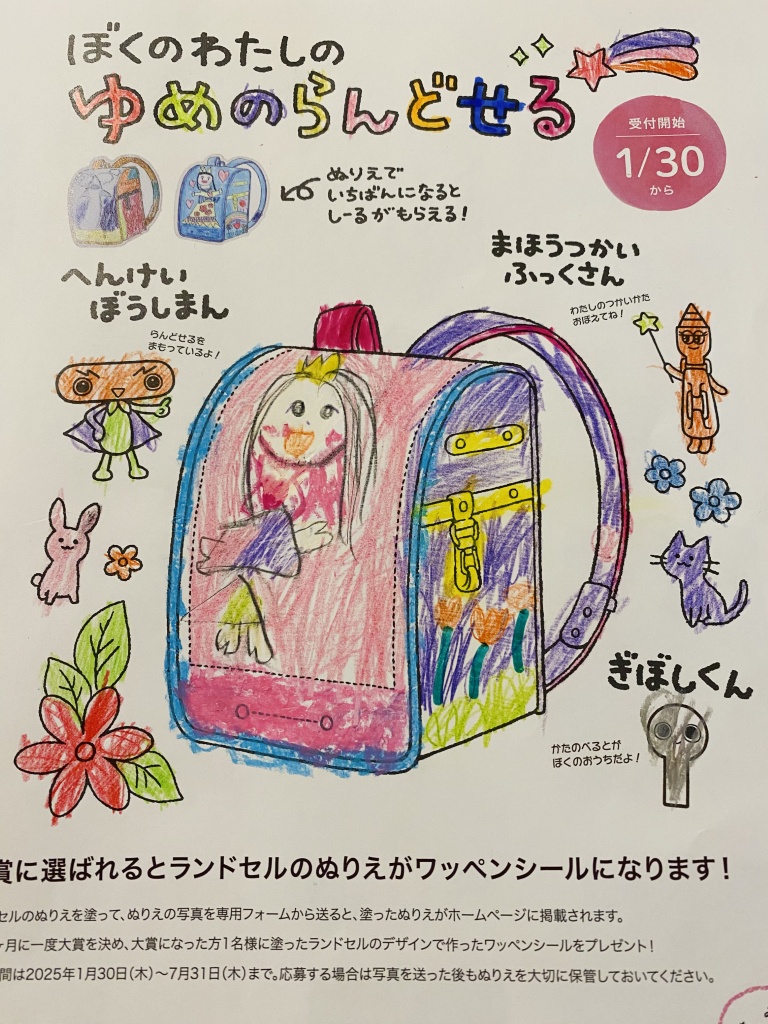 ぼくのわたしの
ゆめのらんどせる
受付開始
1/30
から
ぬりえで
いちばんになると
しーるがもらえる!
まほうつかい
ふっくさん
わたしのつかいかた
おぼえてね!
へんけい
ぼうしまん
らんどせるを
まもっているよ!
ぎぼしくん
かたのべるとが
ぼくのおうちだよ!
賞に選ばれるとランドセルのぬりえがワッペンシールになります!
セルのぬりえを塗って、ぬりえの写真を専用フォームから送ると、塗ったぬりえがホームページに掲載されます。
ヶ月に一度大賞を決め、大賞になった方1名様に塗ったランドセルのデザインで作ったワッペンシールをプレゼント!
間は2025年1月30日(木)〜7月31日(木)まで。応募する場合は写真を送った後もぬりえを大切に保管しておいてください。